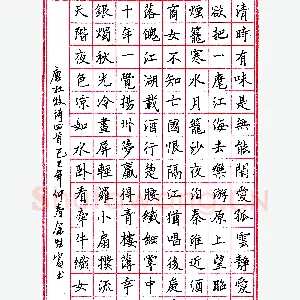 清時有味是無能閒愛孤雲靜愛
欲把一麾江海去樂游原上望昭
煙籠寒水月籠沙夜泊秦淮近酒
商女不知亡國恨隔江猶唱後庭
落魄江湖載酒行楚腰纖細掌中
十年一覺揚州夢贏得青樓薄幸
銀燭秋光冷畫屏輕羅小扇撲流
天階夜色涼如水臥看牽牛織女
唐杜牧詩四首